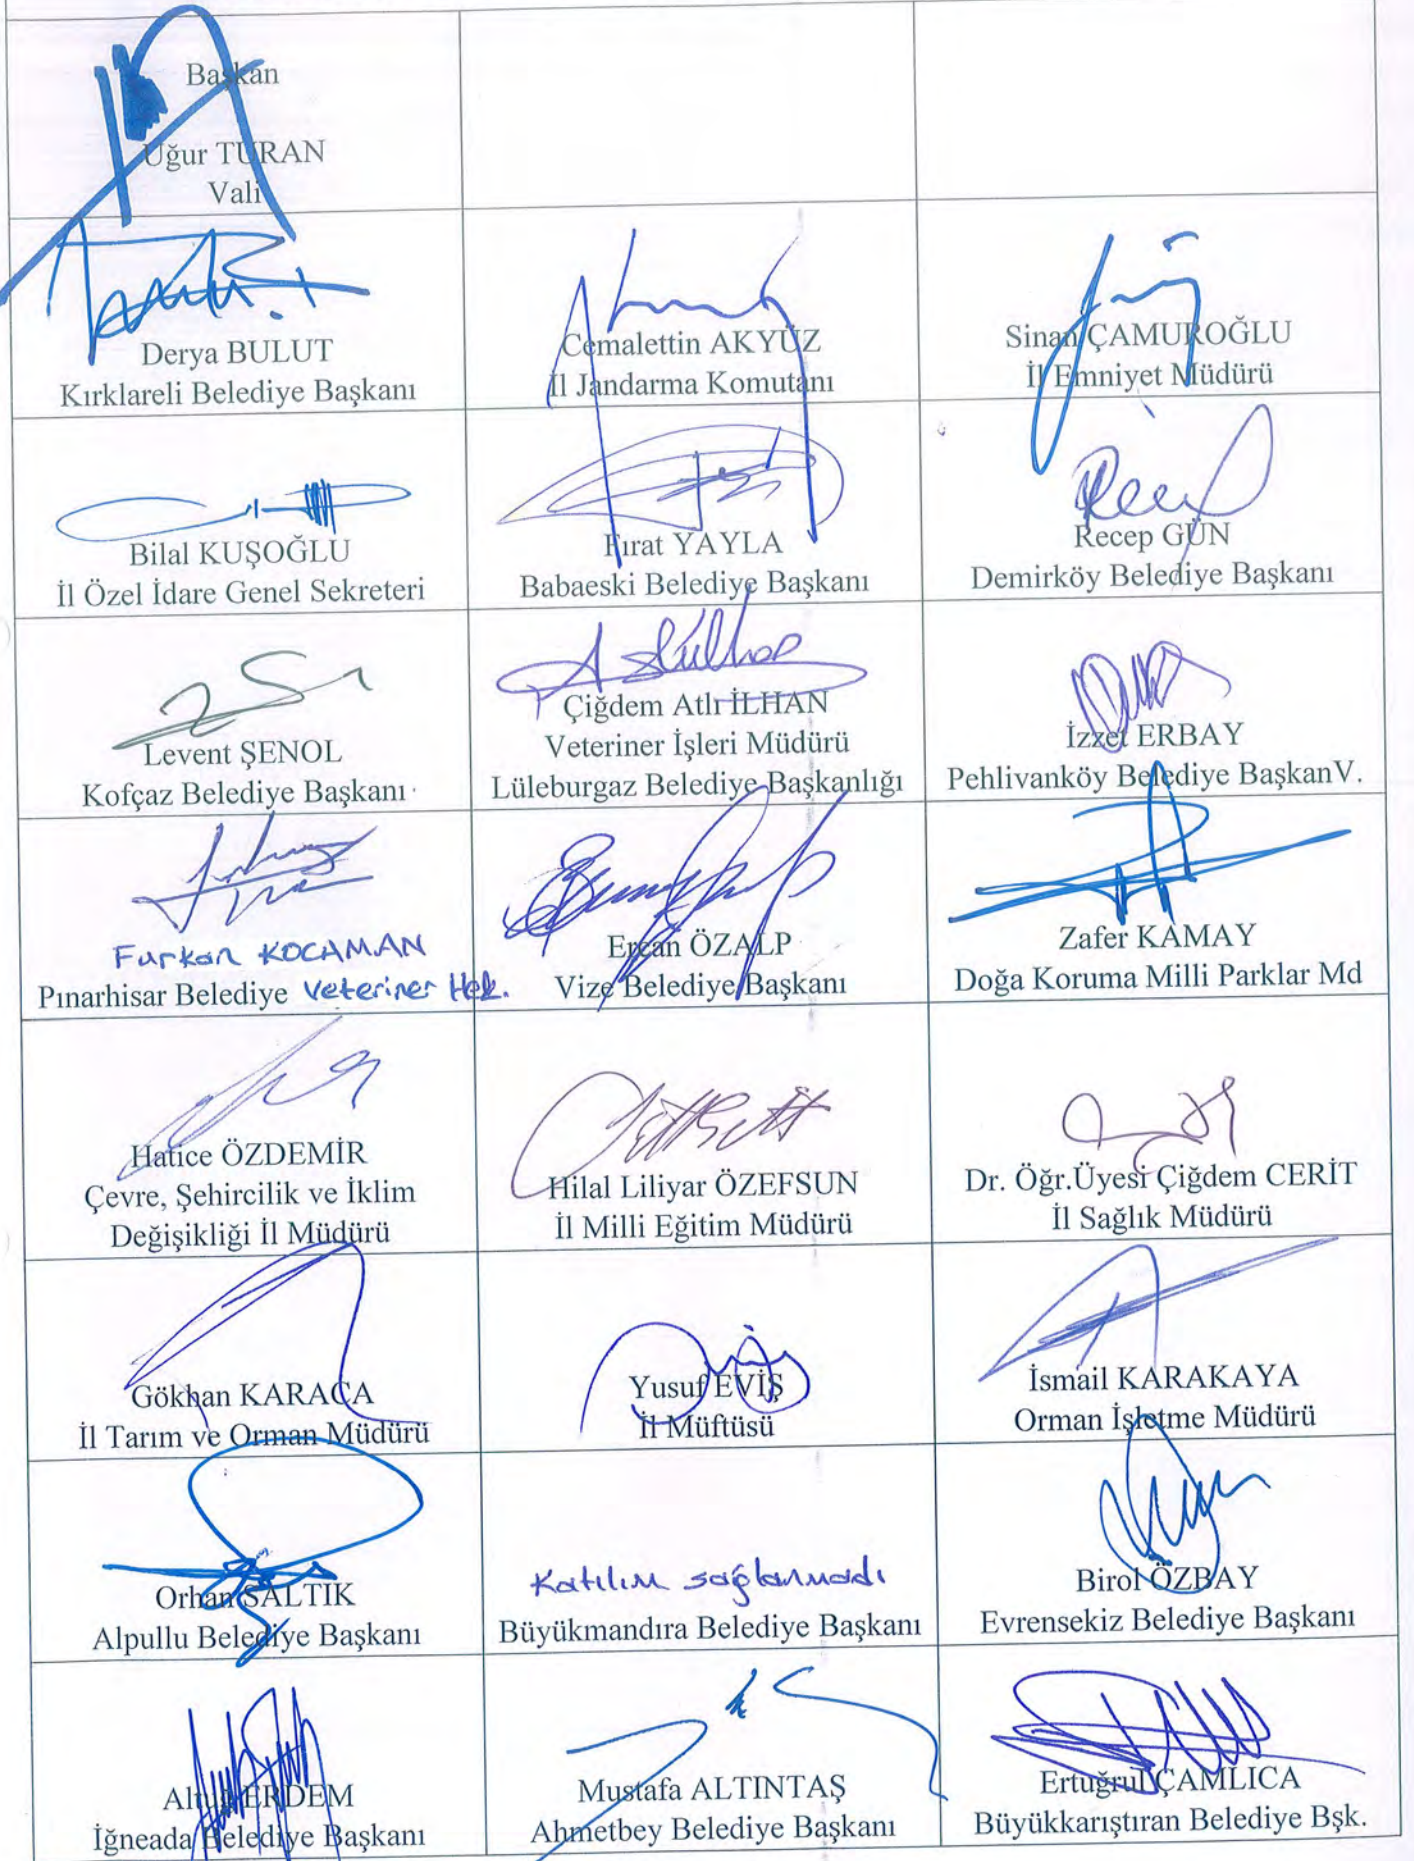 Başkan
Uğur TURAN
Vali
Derya BULUT
Kırklareli Belediye Başkanı
Cemalettin AKYÜZ
İl Jandarma Komutanı
Sinan ÇAMUROĞLU
İl Emniyet Müdürü
Bilal KUŞOĞLU
İl Özel İdare Genel Sekreteri
Fırat YAYLA
Babaeski Belediye Başkanı
Recep GÜN
Demirköy Belediye Başkanı
Levent ŞENOL
Kofçaz Belediye Başkanı
Çiğdem Atlı İLHAN
Veteriner İşleri Müdürü
Lüleburgaz Belediye Başkanlığı
İzzet ERBAY
Pehlivanköy Belediye BaşkanV.
Furkan KOCAMAN
Pınarhisar Belediye Veteriner Hek.
Ercan ÖZALP
Vize Belediye Başkanı
Zafer KAMAY
Doğa Koruma Milli Parklar Md
Hatice ÖZDEMİR
Çevre, Şehircilik ve İklim
Değişikliği İl Müdürü
Hilal Liliyar ÖZEFSUN
İl Milli Eğitim Müdürü
Dr. Öğr.Üyesi Çiğdem CERİT
İl Sağlık Müdürü
Gökhan KARACA
İl Tarım ve Orman Müdürü
Yusuf EVİŞ
İl Müftüsü
İsmail KARAKAYA
Orman İşletme Müdürü
Orhan SALTIK
Alpullu Belediye Başkanı
Katılım sağlanmadı
Büyükmandıra Belediye Başkanı
Birol ÖZBAY
Evrensekiz Belediye Başkanı
ERDEM
İğneada Belediye Başkanı
Mustafa ALTINTAŞ
Ahmetbey Belediye Başkanı
Ertuğrul ÇAMLICA
Büyükkarıştıran Belediye Bşk.